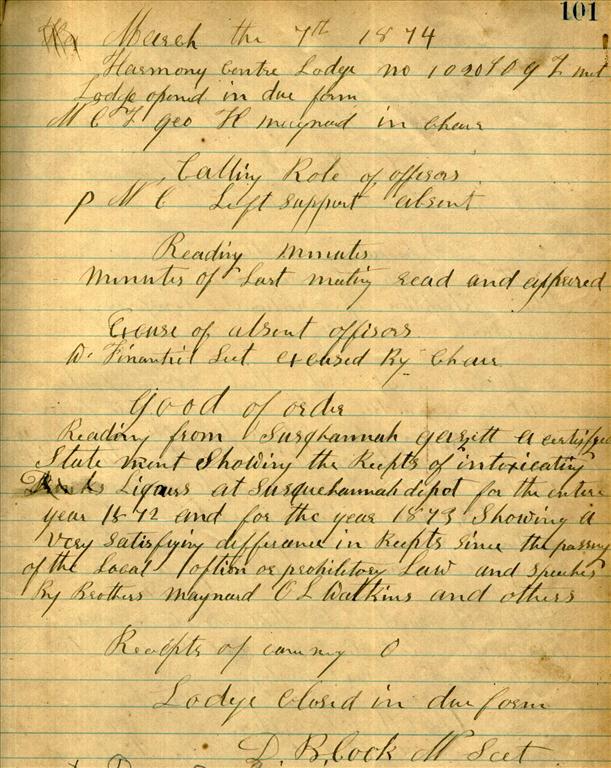 101
March the 7th 1874
Harmony Centre Lodge no 1020 I O of G T met
Lodge opend in due form
W C T geo H maynard in Chair
Calling Role of offisors
P W C Left support absent
Reading minutes
minutes of Last meting read and appreved
Excuse of absent offisors
W. Finantiel Sect excused By Chair
Good of order
Reading from Susqhannah gersitt a certifyed
State ment Showing the Recpts of intoxicating
Drinks Liqours at Susquehannah depot for the entire
year 1872 and for the year 1873 Showing a
very satisfying differance in Recpts since the passing
of the Local option or prohilitory Law and speeches
By Brothers maynard O L Watkins and others
Receipts of evening 0
Lodge Closed in due form
D. B. Cook W Sect